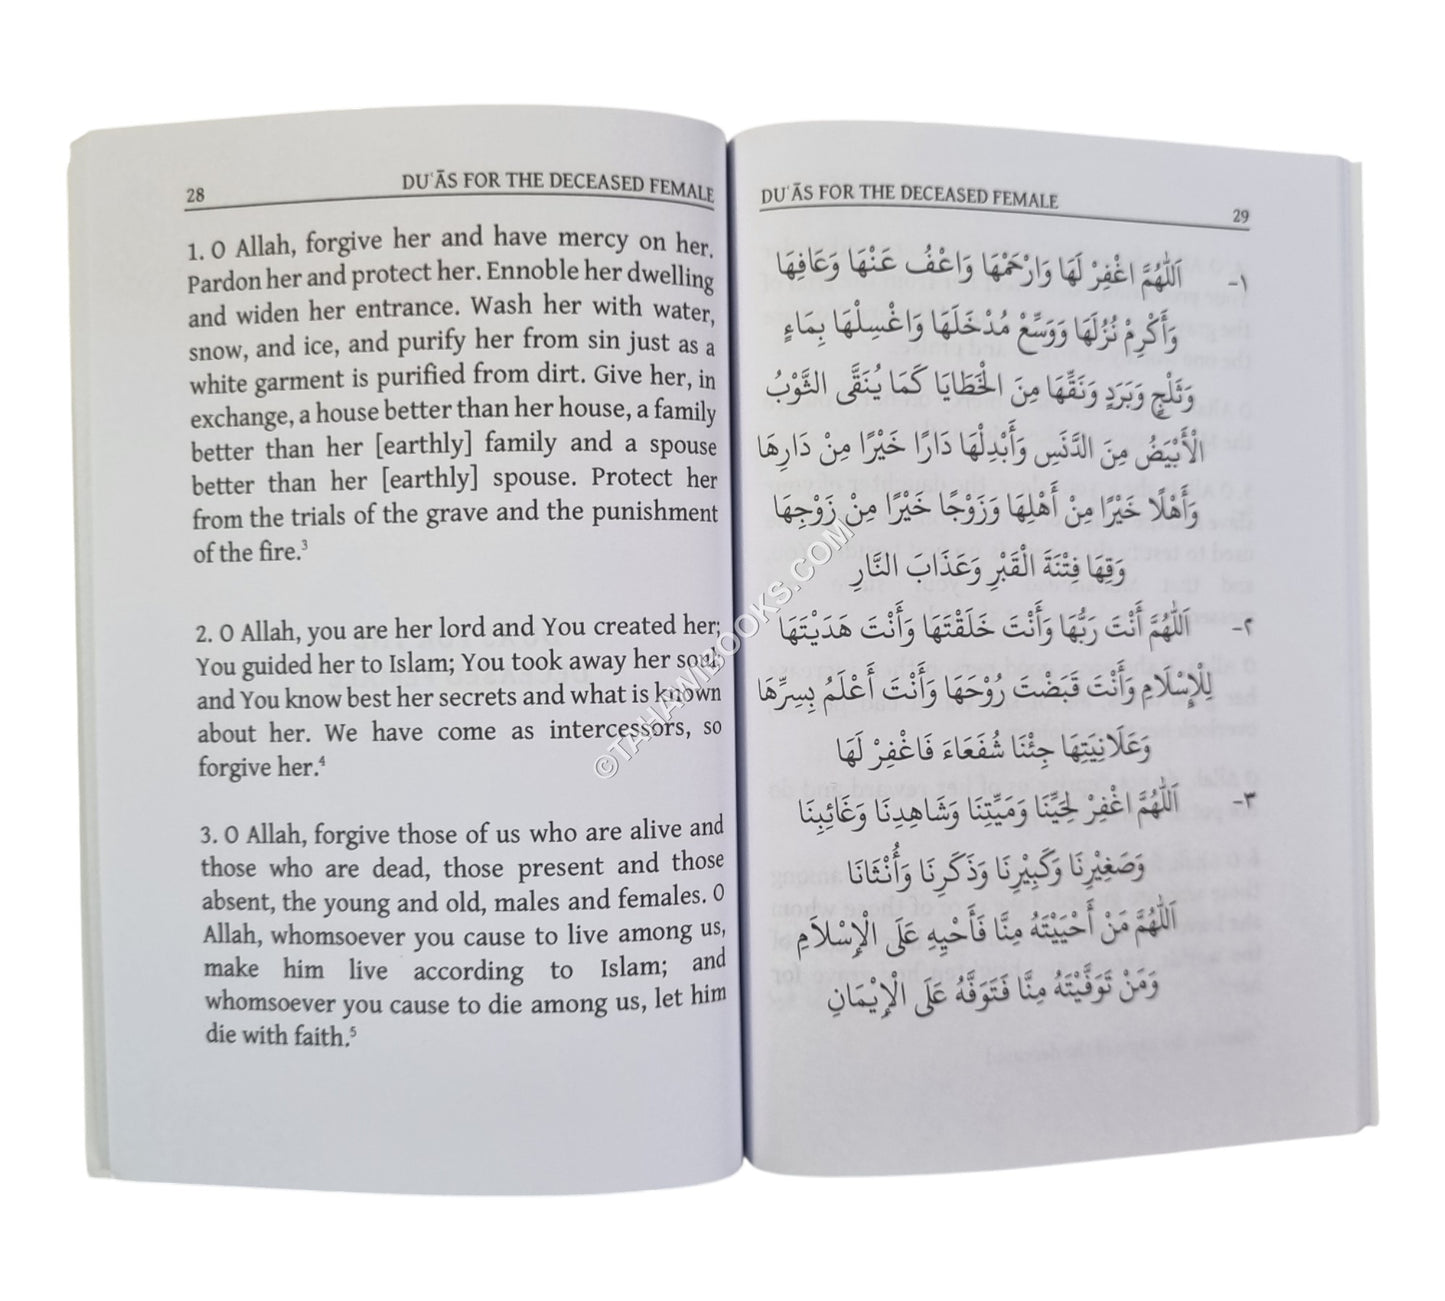 28
DUʿĀS FOR THE DECEASED FEMALE
1. O Allah, forgive her and have mercy on her.
Pardon her and protect her. Ennoble her dwelling
and widen her entrance. Wash her with water,
snow, and ice, and purify her from sin just as a
white garment is purified from dirt. Give her, in
exchange, a house better than her house, a family
better than her [earthly] family and a spouse
better than her [earthly] spouse. Protect her
from the trials of the grave and the punishment
of the fire.³
2. O Allah, you are her lord and You created her;
You guided her to Islam; You took away her soul;
and You know best her secrets and what is known
about her. We have come as intercessors, so
forgive her.⁴
3. O Allah, forgive those of us who are alive and
those who are dead, those present and those
absent, the young and old, males and females. O
Allah, whomsoever you cause to live among us,
make him live according to Islam; and
whomsoever you cause to die among us, let him
die with faith.⁵
DUʿĀS FOR THE DECEASED FEMALE
29
١- اَللّٰهُمَّ اغْفِرْ لَهَا وَارْحَمْهَا وَاعْفُ عَنْهَا وَعَافِهَا
وَأَكْرِمْ نُزُلَهَا وَوَسِّعْ مُدْخَلَهَا وَاغْسِلْهَا بِمَاءٍ
وَثَلْجٍ وَبَرَدٍ وَنَقِّهَا مِنَ الْخَطَايَا كَمَا يُنَقَّى الثَّوْبُ
الْأَبْيَضُ مِنَ الدَّنَسِ وَأَبْدِلْهَا دَارًا خَيْرًا مِنْ دَارِهَا
وَأَهْلًا خَيْرًا مِنْ أَهْلِهَا وَزَوْجًا خَيْرًا مِنْ زَوْجِهَا
وَقِهَا فِتْنَةَ الْقَبْرِ وَعَذَابَ النَّارِ
٢- اَللّٰهُمَّ أَنْتَ رَبُّهَا وَأَنْتَ خَلَقْتَهَا وَأَنْتَ هَدَيْتَهَا
لِلْإِسْلَامِ وَأَنْتَ قَبَضْتَ رُوْحَهَا وَأَنْتَ أَعْلَمُ بِسِرِّهَا
وَعَلَانِيَتِهَا جِئْنَا شُفَعَاءَ فَاغْفِرْ لَهَا
٣- اَللّٰهُمَّ اغْفِرْ لِحَيِّنَا وَمَيِّتِنَا وَشَاهِدِنَا وَغَائِبِنَا
وَصَغِيْرِنَا وَكَبِيْرِنَا وَذَكَرِنَا وَأُنْثَانَا
اَللّٰهُمَّ مَنْ أَحْيَيْتَهُ مِنَّا فَأَحْيِهِ عَلَى الْإِسْلَامِ
وَمَنْ تَوَفَّيْتَهُ مِنَّا فَتَوَفَّهُ عَلَى الْإِيْمَانِ
©TAHAWIBOOKS.COM